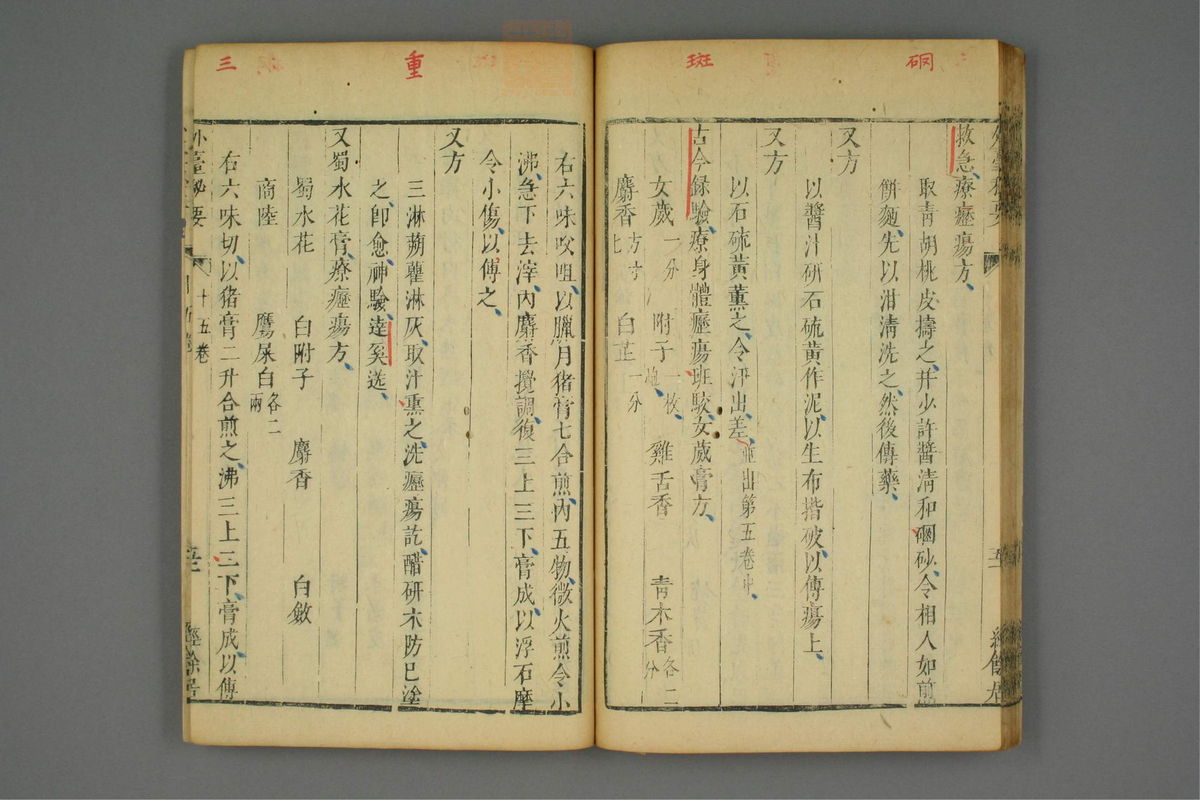 硇
斑
救急療癧瘍方
取青胡桃皮擣之并少許醬清和硇砂令相入如煎
餅麪先以泔清洗之然後傅藥
又方
以醬汁研石硫黃作泥以生布揩破以傅瘍上
又方
以石硫黃薰之令汗出差並出第五卷中
古今錄驗療身體癧瘍班駮女葳膏方
女葳一分 附子一枚炮 雞舌香 青木香各二分
麝香方寸匕 白芷一分
重
三
右六味㕮咀以臘月猪膏七合煎內五物微火煎令小
沸急下去滓內麝香攪調復三上三下膏成以浮石摩
令小傷以傅之
又方
三淋蒴藋淋灰取汁熏之洗癧瘍訖醋研木防巳塗
之卽愈神驗逹奚送
又蜀水花膏療癧瘍方
蜀水花 白附子 麝香 白斂
商陸 鷹屎白各二兩
右六味切以猪膏二升合煎之沸三上三下膏成以傅
外臺秘要 十五卷
經餘居